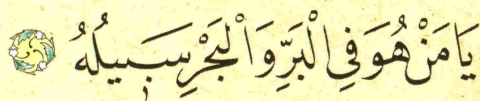 يَا مَنْ هُوَ فِي الْبَرِّ وَالْبَحْرِ سَبِيلُهُ